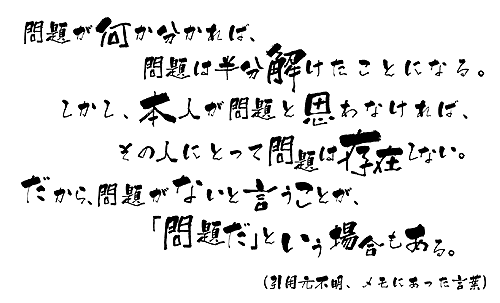 問題が何か分かれば、
問題は半分解けたことになる。
しかし、本人が問題と思わなければ、
その人にとって問題は存在しない。
だから、問題がないと言うことが、
「問題だ」という場合もある。
(引用元不明、メモにあった言葉)